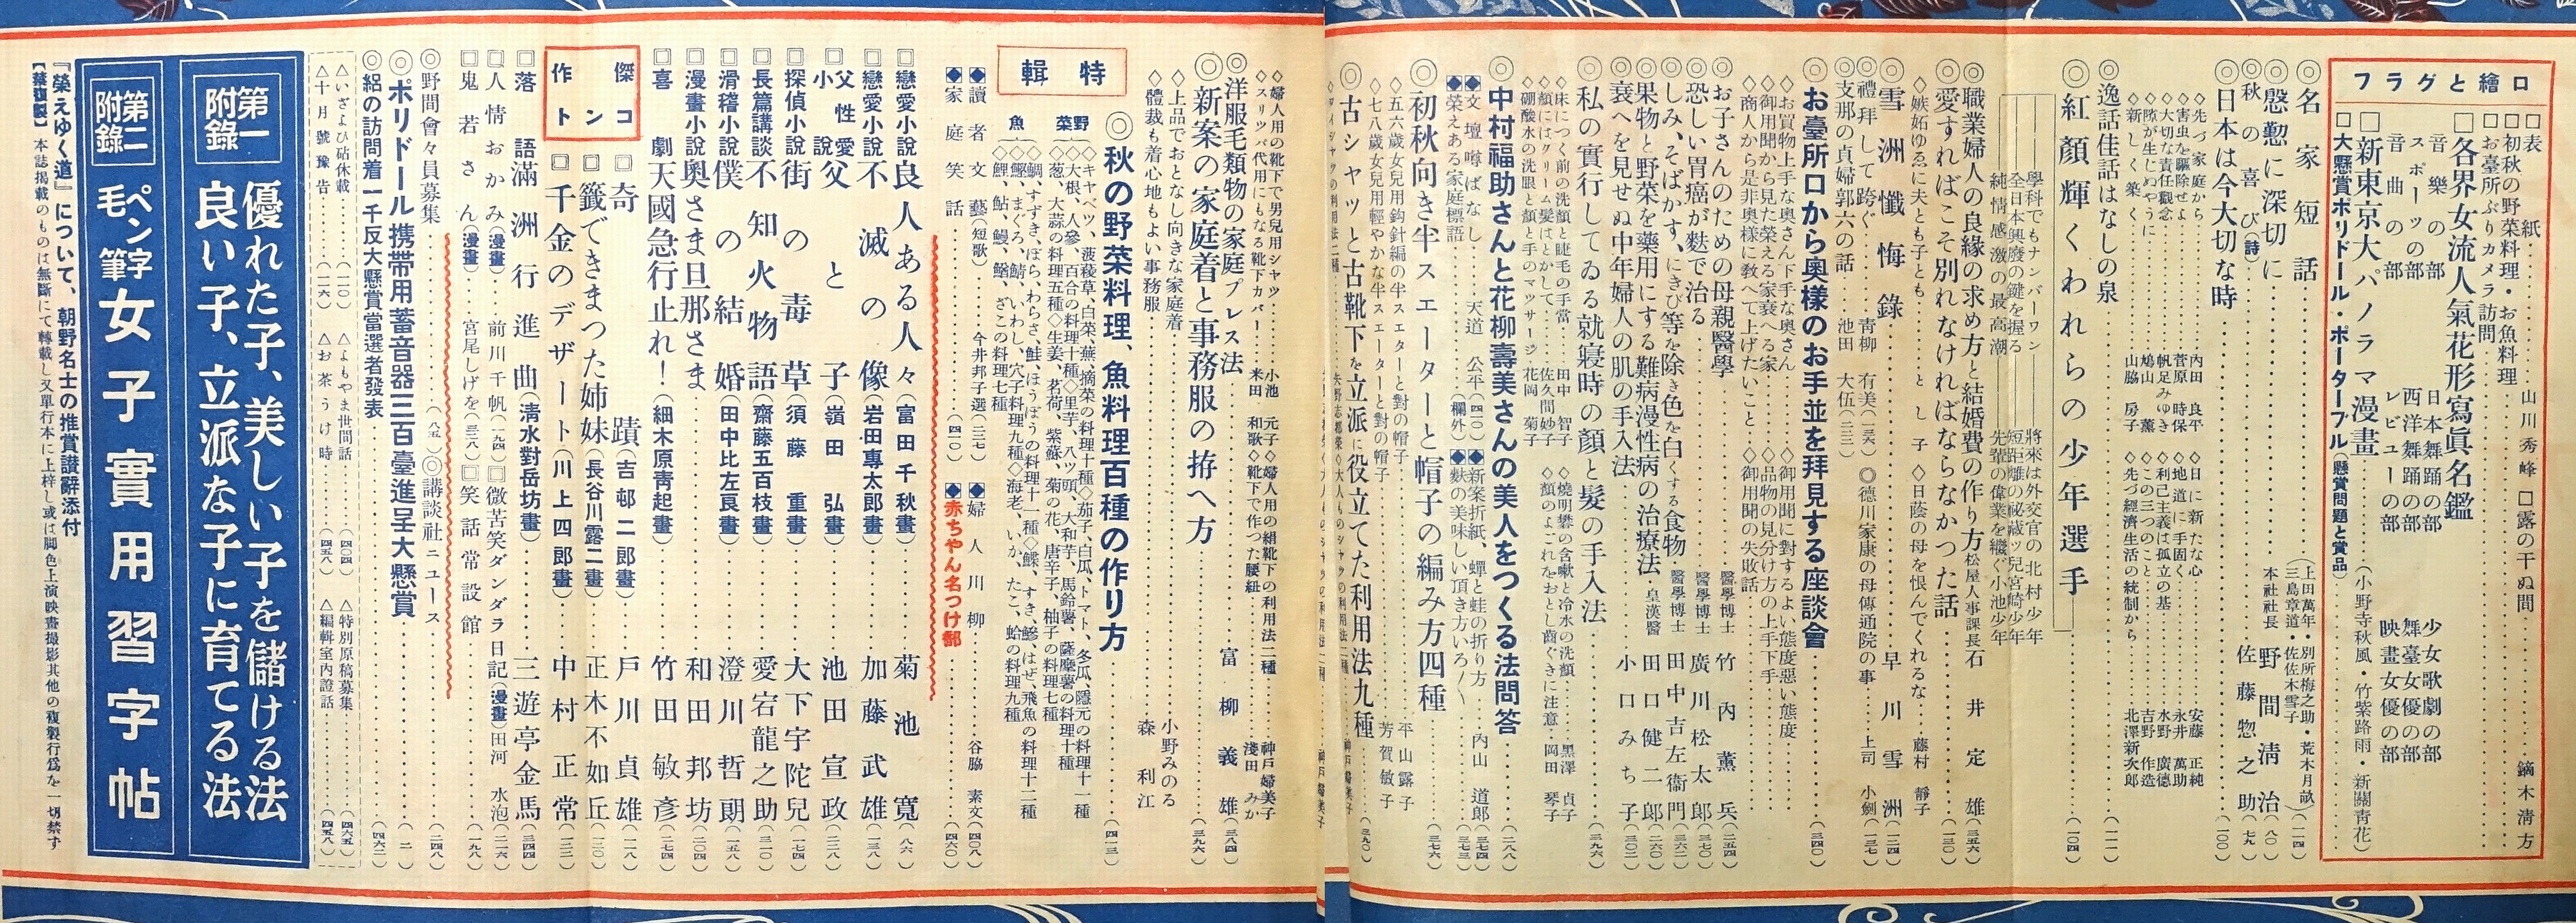 口繪とグラフ
□表紙 山川秀峰
□露の干ぬ間 鏑木淸方
□初秋の野菜料理・お魚料理
□お臺所ぶりカメラ訪問
□各界女流人氣花形寫眞名鑑
音樂の部 日本舞踊の部 少女歌劇の部
スポーツの部 西洋舞踊の部 舞臺女優の部
音曲の部 レビューの部 映畫女優の部
□新東京大パノラマ漫畫(小野寺秋風・竹紫路雨・新關靑花)
□大懸賞ポリドール・ポータブル(懸賞問題と賞品)
◎名家短話(上田萬年・別所梅之助・荒木月畝 三島章道・佐佐木雪子)(二四)
◎慇懃に深切に 本社社長 野間淸治(八〇)
◎秋の喜び(詩) 佐藤惣之助(七九)
◎日本は今大切な時(一〇〇)
◇先づ家庭から 內田良平
◇日に新たな心 安藤正純
◇害虫を驅除せよ 菅原時保
◇地道に手固く 永井萬助
◇大切な責任觀念 帆足みゆき
◇利己主義は孤立の基 水野廣德
◇敗が生じぬやうに 鳩山薰
◇この三つのこと 吉野作造
◇新しく築く 山脇房子
◇先づ經濟生活の統制から 北澤新次郎
◎逸話佳話はなしの泉
◎紅顏輝くわれらの少年選手(一〇四)
學科でもナンバーワン 將來は外交官の北村少年
全日本興廢の鍵を握る 短距離の秘藏ッ兒宮崎少年
純情感激の最高潮 先輩の偉業を繼ぐ小池少年
◎職業婦人の良緣の求め方と結婚費の作り方 松屋人事課長 石井定雄(三五六)
◎愛すればこそ別れなければならなかつた話(一三〇)
◇嫉妬ゆゑに夫とも子とも とし子
◇日蔭の母を恨んでくれるな 藤村靜子
◎雪洲懺悔錄 早川雪洲(一二四)
◎禮拜して跨ぐ 靑柳有美(一三六)
◎德川家康の母傳通院の事 上司小劍(一三七)
◎支那の貞婦郭六の話 池田大伍(二三三)
◎お臺所口から奧樣のお手並を拜見する座談會(三四〇)
◇お買物上手な奧さん下手な奧さん
◇御用聞に對するよい態度惡い態度
◇御用聞から見た榮える家衰へる家
◇品物の見分け方の上手下手
◇商人から是非奧樣に敎へて上げたいこと
◇御用聞の失敗話
◎お子さんのための母親醫學 醫學博士 竹內薰兵(二五四)
◎恐しい胃癌が麩で治る 醫學博士 廣川松太郎(三七〇)
◎しみ、そばかす、にきび等を除き色を白くする食物 醫學博士 田中吉左衞門(三六二)
◎果物と野菜を藥用にする難病漫性病の治療法 皇漢醫 田口健二郎(二六〇)
◎衰へを見せぬ中年婦人の肌の手入法 小口みち子(三〇二)
◎私の實行してゐる就寢時の顏と髮の手入法(三九六)
◇床につく前の洗顏と睫毛の手當 田中智子
◇燒明礬の含嗽と冷水の洗顏 黑澤貞子
◇顏にはクリーム髮はとかして 佐久間妙子
◇顏のよごれをおとし齒ぐきに注意 岡田琴子
◇硼酸水の洗眼と顏と手のマッサージ 花岡菊子
◎中村福助さんと花柳壽美さんの美人をつくる法問答(二八八)
◆文壇噂ばなし 天道公平(四一〇)
◆新案折紙、蟬と蛙の折り方 內山道郎(三七四)
◆榮えある家庭標語(欄外)
◆麩の美味しい頂き方いろ〱(三七三)
◎初秋向き半スエーターと帽子の編み方四種(三七六)
◇五六歲女兒用鈎針編の半スエーターと對の帽子 平山露子
◇七八歲女兒用輕やかな半スエーターと對の帽子 芳賀敏子
◎古シャツと古靴下を立派に役立てた利用法九種(三九〇)
◇婦人用の靴下で男兒用シャツ 小池元子
◇婦人用の絹靴下の利用法二種 神戶婦美子
◇スリッパ代用にもなる靴下カバー 米田和歌
◇靴下で作つた腰紐 淺田みか
◎洋服毛類物の家庭プレス法 富柳義雄(三八四)
◎新案の家庭着と事務服の拵へ方(三九六)
◇上品でおとなし向きな家庭着 小野みのる
◇體裁も着心地もよい事務服 森利江
特輯
◎秋の野菜料理、魚料理百種の作り方(四一三)
野菜
◇キャベツ、菠薐草、白菜、蕪、摘菜の料理十種◇茄子、白瓜、トマト、冬瓜、隱元の料理十一種
◇大根、人參、百合の料理十種◇里芋、八ツ頭、大和芋、馬鈴薯、薩摩薯の料理十種
◇葱、大蒜の料理五種◇生姜、茗荷、紫蘇、菊の花、唐辛子、柚子の料理七種
魚
◇鯛、すずき、ぼら、わらさ、鮭、ほうぼうの料理十一種◇鰈、すき、鯵、はぜ、飛魚の料理十二種
◇鰹、まぐろ、鯖、いわし、穴子料理九種◇海老、いか、たこ、蛤の料理九種
◇鯉、鮎、鰻、鰌、ざこの料理七種
◆讀者文藝(短歌) 今井邦子選(三七)
◆婦人川柳 谷脇素文(四〇八)
◆家庭笑話(四一〇)
◆赤ちやん名つけ部(四六〇)
□戀愛小說 良人ある人々(富田千秋畫) 菊池寬(八六)
□戀愛小說 不滅の像(岩田專太郎畫) 加藤武雄(一三八)
□父性愛小說 父と子(嶺田弘畫) 池田宣政(三二八)
□探偵小說 街の毒草(須藤重畫) 大下宇陀兒(一七四)
□長篇講談 不知火物語(齋藤五百枝畫) 愛宕龍之助(三一〇)
□滑稽小說 僕の結婚(田中比左良畫) 澄川哲朗(一五八)
□漫畫小說 奧さま旦那さま 和田邦坊(二〇四)
□喜劇 天國急行止れ!(細木原靑起畫) 竹田敏彥(二七四)
傑作コント
□奇蹟(吉邨二郎畫) 戶川貞雄(二一八)
□籤できまつた姉妹(長谷川露二畫) 正木不如丘(三三〇)
□千金のデザート(川上四郎畫) 中村正常(一三二)
□落語 滿洲行進曲(淸水對岳坊畫) 三遊亭金馬(三四四)
□人情おかみ(漫畫) 前川千帆(一九四)
□微苦笑ダンダラ日記(漫畫) 田河水泡(二一六)
□鬼若さん(漫畫) 宮尾しげを(三八)
□笑話常設館(一九八)
◎野間會々員募集(八五)
◎講談社ニュース(二四八)
◎ポリドール携帶用蓄音器三百臺進呈大懸賞(二一)
◎絽の訪問着一千反大懸賞當選者發表(四六二)
△いざよひ砧休載(二一〇)
△よもやま世間話(四〇四)
△特別原稿募集(四六五)
△十月號豫告(二六)
△お茶うけ時(四五八)
△編輯室內證話(四五八)
第一附錄
優れた子、美しい子を儲ける法
良い子、立派な子に育てる法
第二附錄
ペン字毛筆 女子實用習字帖
『榮えゆく道』について、朝野名士の推賞讃辭添付
【禁複製】本誌揭載のものは無斷にて轉載し又單行本に上梓し或は脚色上演映畫撮影其他の複製行爲を一切禁ず